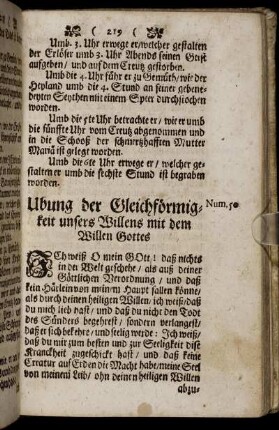 ( 219 (
Umb. 3. Uhr erwege er/welcher gestalten
der Erlöser umb 3. Uhr Abends seinen Geist
aufgeben/ und auf dem Creutz gestorben.
Umb die 4. Uhr führ er zu Gemüth/wie der
Heyland umb die 4. Stund an seiner gebene-
deyten Seythen mit einem Speer durchstochen
worden.
Umb die 5te Uhr betrachte er/ wie er umb
die fünffte Uhr vom Creutz abgenommen und
und in die Schooß der schmertzhafften Mutter
Mariä ist gelegt worden.
Umb die 6te Uhr erwege er/ welcher ge-
stalten er umb die sechste Stund ist begraben
worden.
Ubung der Gleichförmig-
keit unsers Willens mit dem
Willen Gottes
Num. 50
ICh weiß O mein GOtt! daß nichts
in der Welt geschehe/ als auß deiner
Göttlichen Verordnung / und daß
kein Härlein von meinem Haupt fallen könne/
als durch deinen heiligen Willen/ ich weiß/daß
du mich lieb hast/ und daß du nicht den Todt
des Sünders begehrest/ sondern verlangest/
daß er sich bekehre/und seelig werde: Ich weiß/
daß du mir zum besten und zur Seeligkeit dise
Kranckheit zugeschickt hast/ und daß keine
Creatur auf Erden die Macht habe/meine Seel
von meinem Leib/ ohn deinen heiligen Willen
abzu-